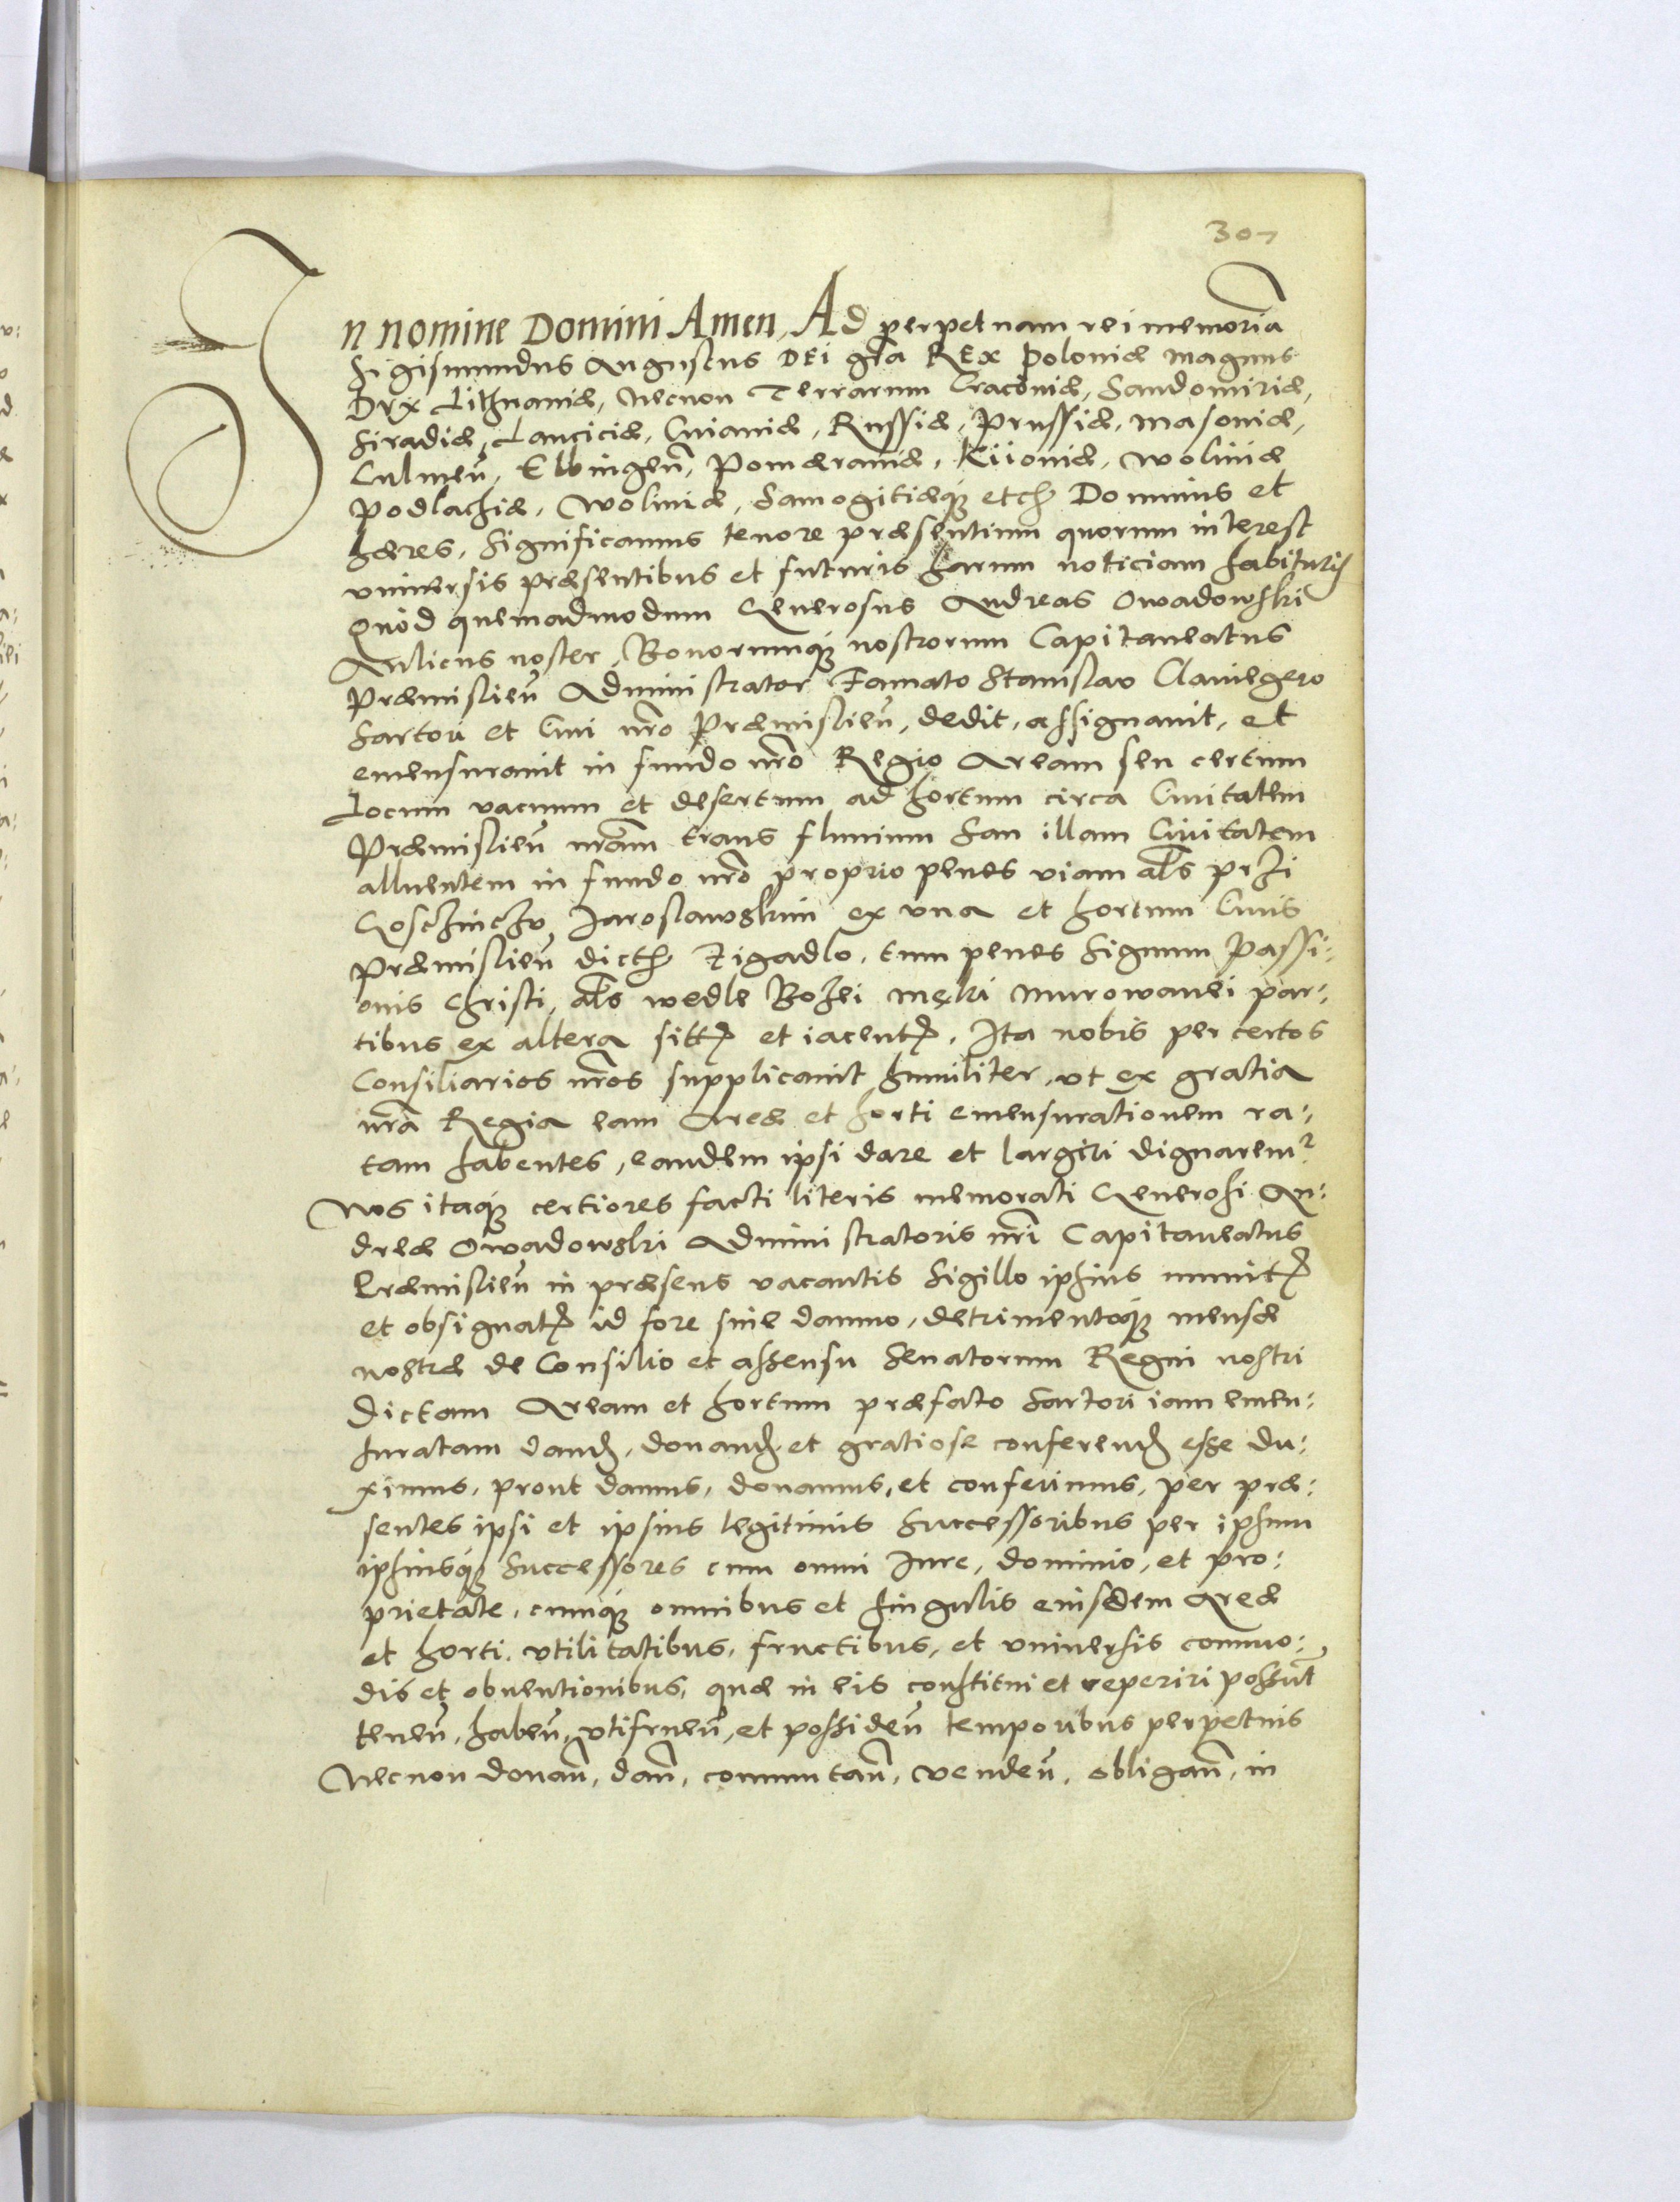 307
In nomine Domini Amen, Ad perpetuam rei memoriã
Sigismundus Augustus DEi gr̃a REx Poloniæ magnus
Dux Lithuaniæ, Necnon Terrarum Cracoviæ, Sandomiriæ,
Siradiæ, Lanciciæ, Cuiaviæ, Russiæ, Prussiæ, Masoviæ,
Culmeñ, Elbingeñ, Pomæraniæ, Kiioviæ, Woliniæ
Podlachiæ, Woliniæ, Samogitiæq; etc Dominus et
hæres, Significamus tenore præsentium quorum interest
universis præsentibus et futuris harum noticiam habituris
Quòd quemadmodum Generosus Andreas Owadowski
Aulicus noster, Bonorumq; nostrorum Capitaneatus
Præmislieñ Administrator Famato Stanislao Clavigero
Sartori et Civi nr̃o Præmislieñ, dedit, assignavit, et
emensuravit in fundo nr̃o Regio Aream seu certum
Locum vacuum et desertum ad hortum circa Civitatem
Præmislieñ nr̃am trans fluvium San illam Civitatem
alluentem in fundo nr̃o proprio penes viam als̃ przi
Gosczinczu Jaroslawskim ex una et hortum Civis
Præmislieñ dict Zigadlo, tum penes Signum Passi:
onis Christi, als̃ wedle Bozei męki murowanei par:
tibus ex altera sitt et iacent. Ita nobis per certos
Consiliarios nr̃os supplicavit humiliter, ut ex gratia
nr̃a Regia eam Areæ et horti emensurationem ra:
tam habentes, eandem ipsi dare et largiri dignarem̃
Nos itaq; certiores facti literis memorati Generosi An:
dreæ Owadowski Administratoris nr̃i Capitaneatus
Præmislieñ in præsens vacantis Sigillo ipsius munit
et obsignat id fore sine damno, detrimentoq; mensæ
nostræ de Consilio et assensu Senatorum Regni nostri
Dictam Aream et hortum præfato Sartori iam emen:
suratam dand, donand et gratiose conferend esse du:
ximus, prout damus, donamus, et conferimus, per præ:
sentes ipsi et ipsius legitimis Successoribus per ipsum
ipsiusq; Successores cum omni Iure, dominio, et pro:
prietate, cumq; omnibus et singulis eiusdem Areæ
et horti, utilitatibus, fructibus, et universis commo:
dis et obventionibus, quæ in eis constitui et reperiri possũt
teneñ, habeñ, utifrueñ, et possideñ temporibus perpetuis
Necnon donañ, dañ, commutañ, vendeñ, obligañ, in